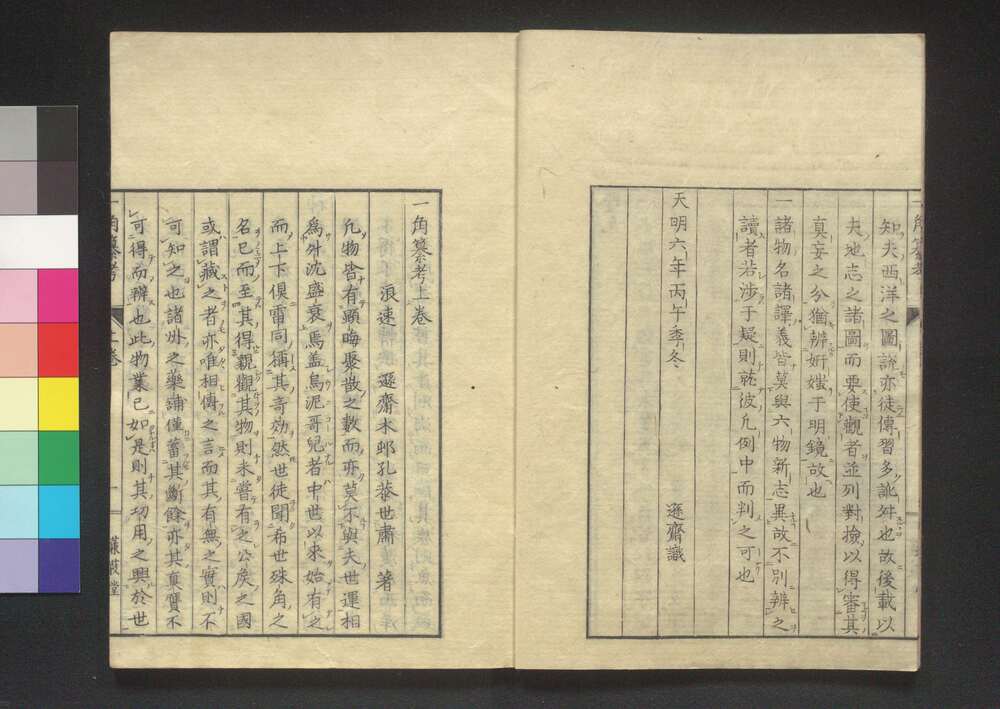 知夫西洋之圖說亦徒傳習多訛舛也故後載以
夫地志之諸圖而要使觀者並列對撿以得審其
真妄之分猶辨妍媸于明鏡故也
一諸物名諸譯義皆莫與六物新志異故不別辨之
讀者若涉于疑則就彼凡例中而判之可也
天明六年丙午季冬
遜齋識
一角纂考上卷
浪速 遜齋木邨孔恭世肅 著
凡物皆有顯晦聚散之數而亦莫不與夫世運相
為升沈盛衰焉盖烏泥哥兒者中世以來始有之
而上下俱雷同稱其奇効然世徒聞希世殊角之
名已而至其得親觀其物則未嘗有之公侯之國
或謂藏之者亦唯相傳之言而其有無之實則不
可知之也諸州之藥舖僅蓄其斷餘亦其真贋不
可得而辨也此物業已如是則其功用之興於世
一角纂考
上卷
一
蒹葭堂